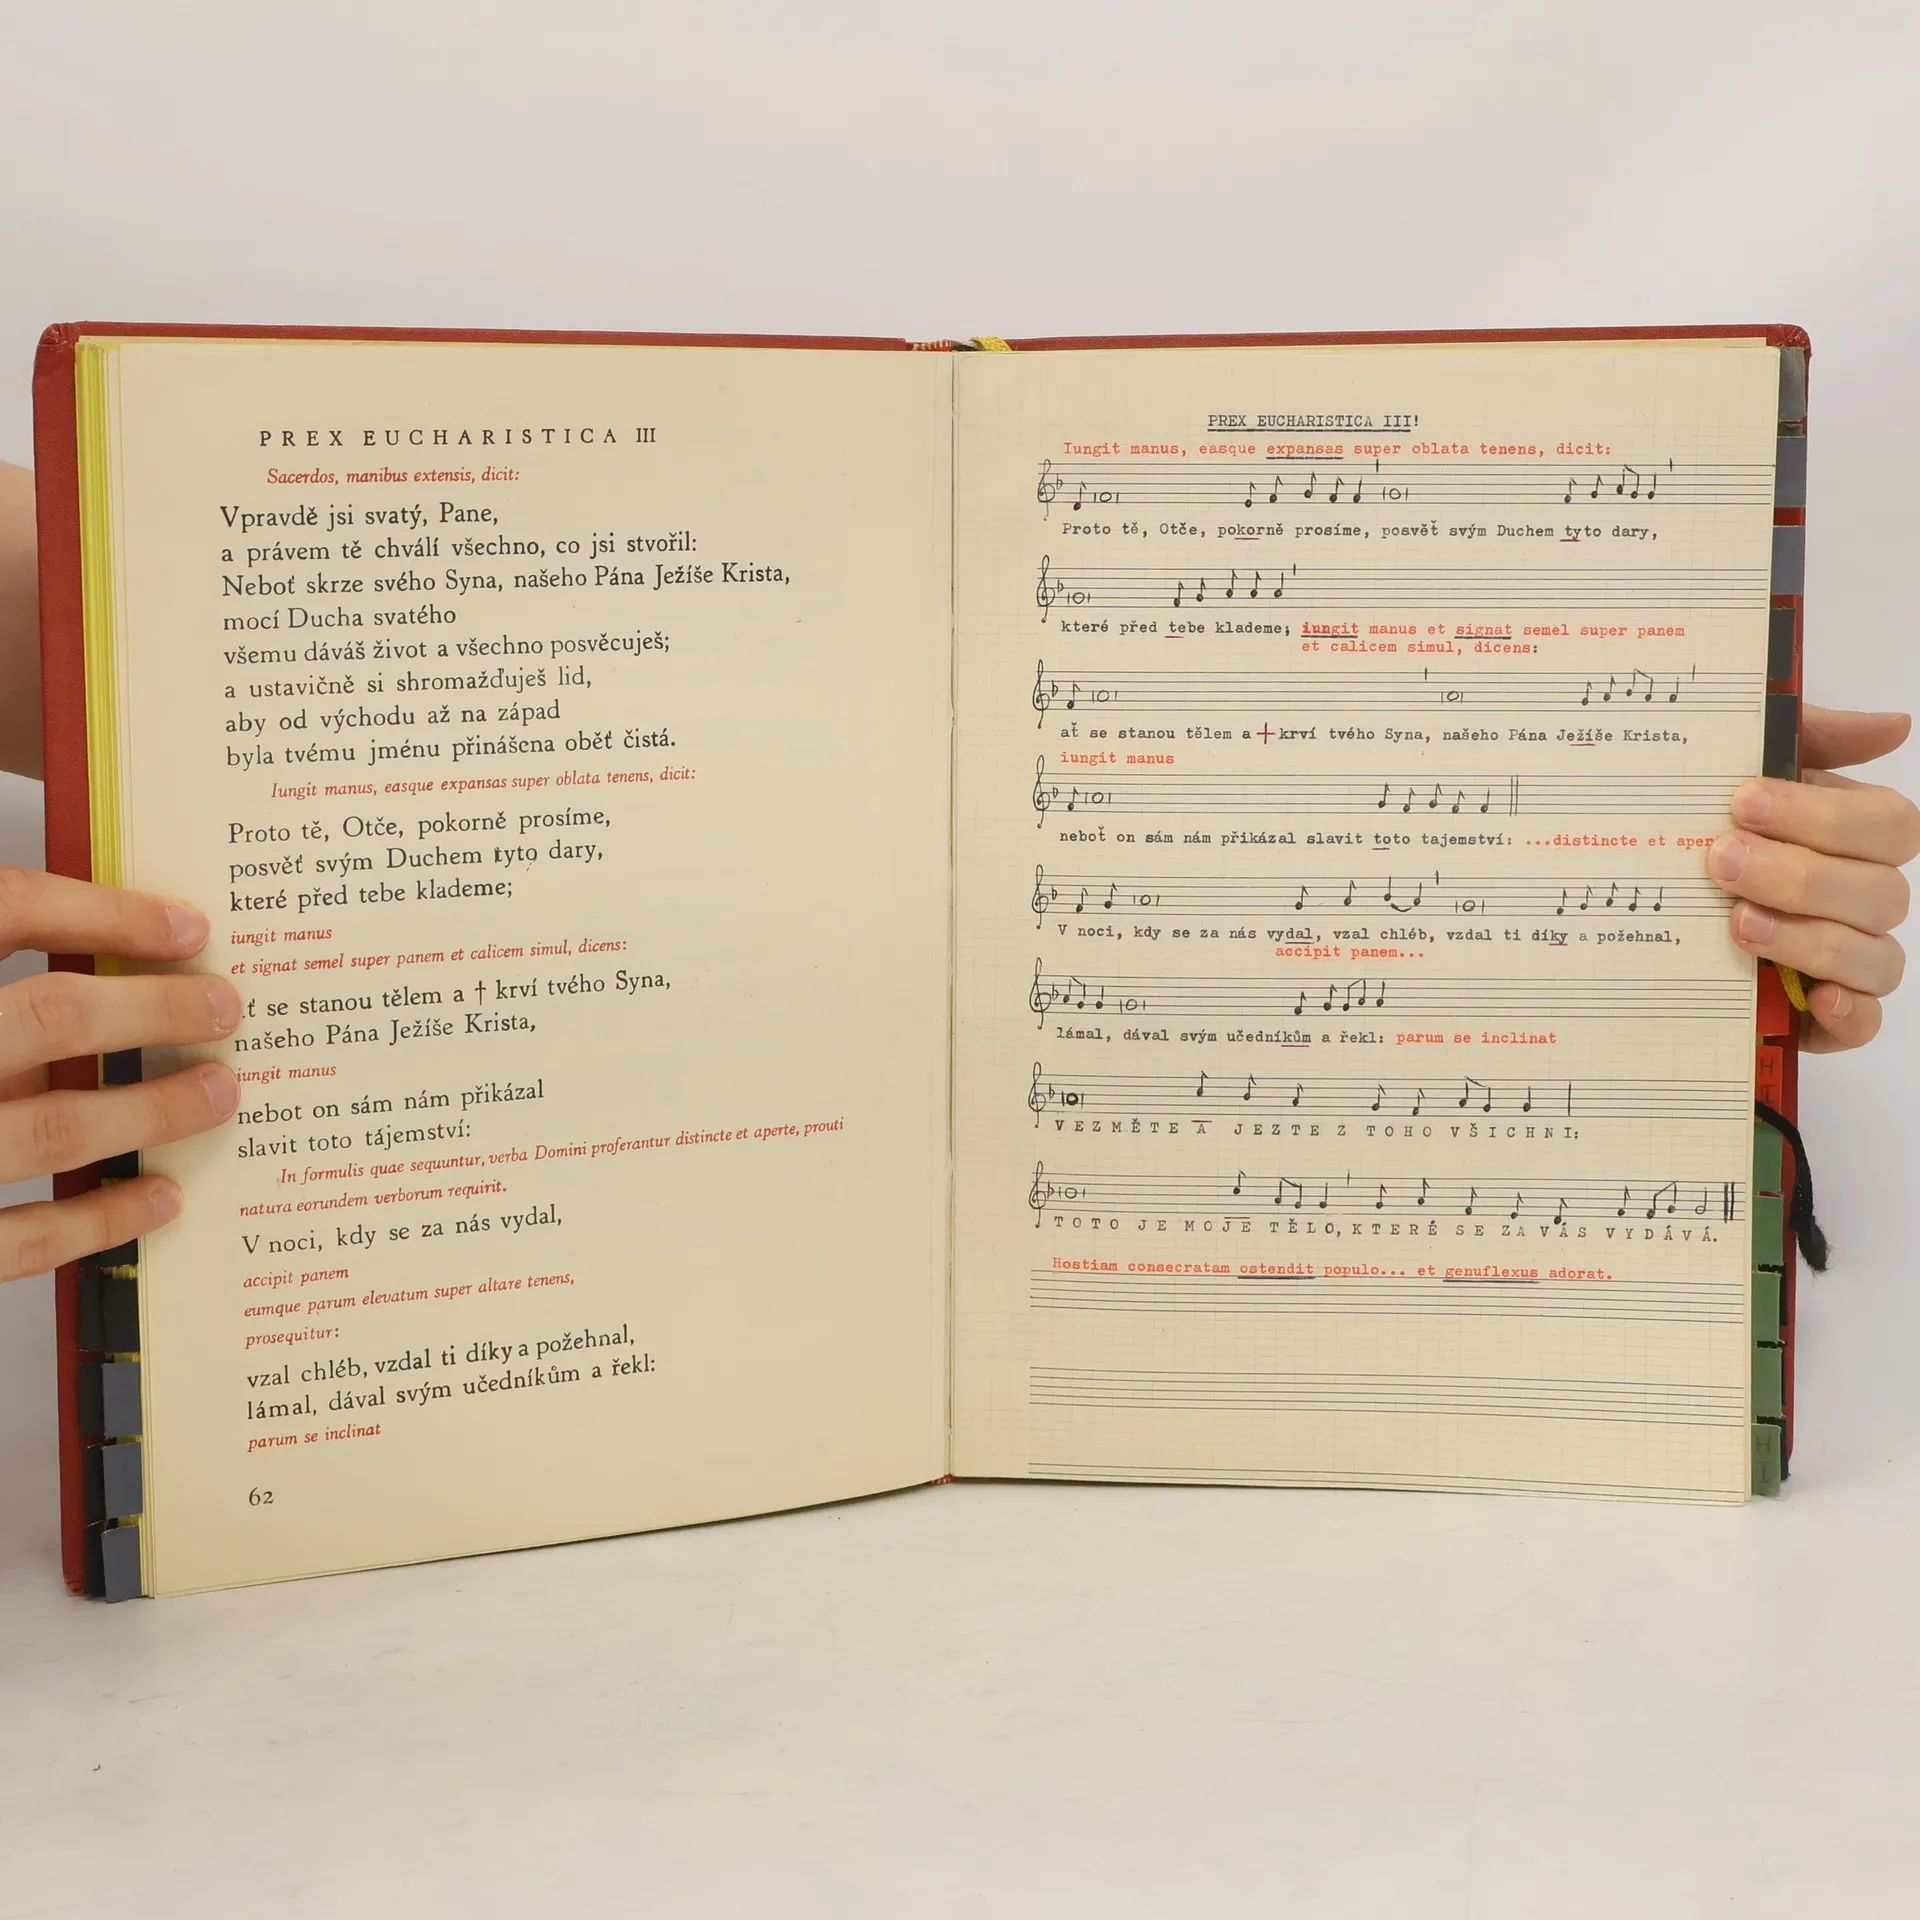 PREX EUCHARISTICA III
Sacerdos, manibus extensis, dicit:
Vpravdě jsi svatý, Pane,
a právem tě chválí všechno, co jsi stvořil:
Neboť skrze svého Syna, našeho Pána Ježíše Krista,
mocí Ducha svatého
všemu dáváš život a všechno posvěcuješ;
a ustavičně si shromažďuješ lid,
aby od východu až na západ
byla tvému jménu přinášena oběť čistá.
Iungit manus, easque expansas super oblata tenens, dicit:
Proto tě, Otče, pokorně prosíme,
posvěť svým Duchem tyto dary,
které před tebe klademe;
iungit manus
et signat semel super panem et calicem simul, dicens:
ť se stanou tělem a † krví tvého Syna,
našeho Pána Ježíše Krista,
iungit manus
nebot on sám nám přikázal
slavit toto tájemství:
In formulis quae sequuntur, verba Domini proferantur distincte et aperte, prouti
natura eorundem verborum requirit.
V noci, kdy se za nás vydal,
accipit panem
eumque parum elevatum super altare tenens,
prosequitur:
vzal chléb, vzdal ti díky a požehnal,
lámal, dával svým učedníkům a řekl:
parum se inclinat
62
PREX EUCHARISTICA III!
Iungit manus, easque expansas super oblata tenens, dicit:
Proto tě, Otče, pokorně prosíme, posvěť svým Duchem tyto dary,
které před tebe klademe; iungit manus et signat semel super panem
et calicem simul, dicens:
ať se stanou tělem a + krví tvého Syna, našeho Pána Ježíše Krista,
iungit manus
neboť on sám nám přikázal slavit toto tajemství: ...distincte et aper
V noci, kdy se za nás vydal, vzal chléb, vzdal ti díky a požehnal,
accipit panem...
lámal, dával svým učedníkům a řekl: parum se inclinat
VEZMĚTE A JEZTE Z TOHO VŠICHNI:
TOTO JE MOJE TĚLO, KTERÉ SE ZA VÁS VYDÁVÁ.
Hostiam consecratam ostendit populo... et genuflexus adorat.
H
H
L